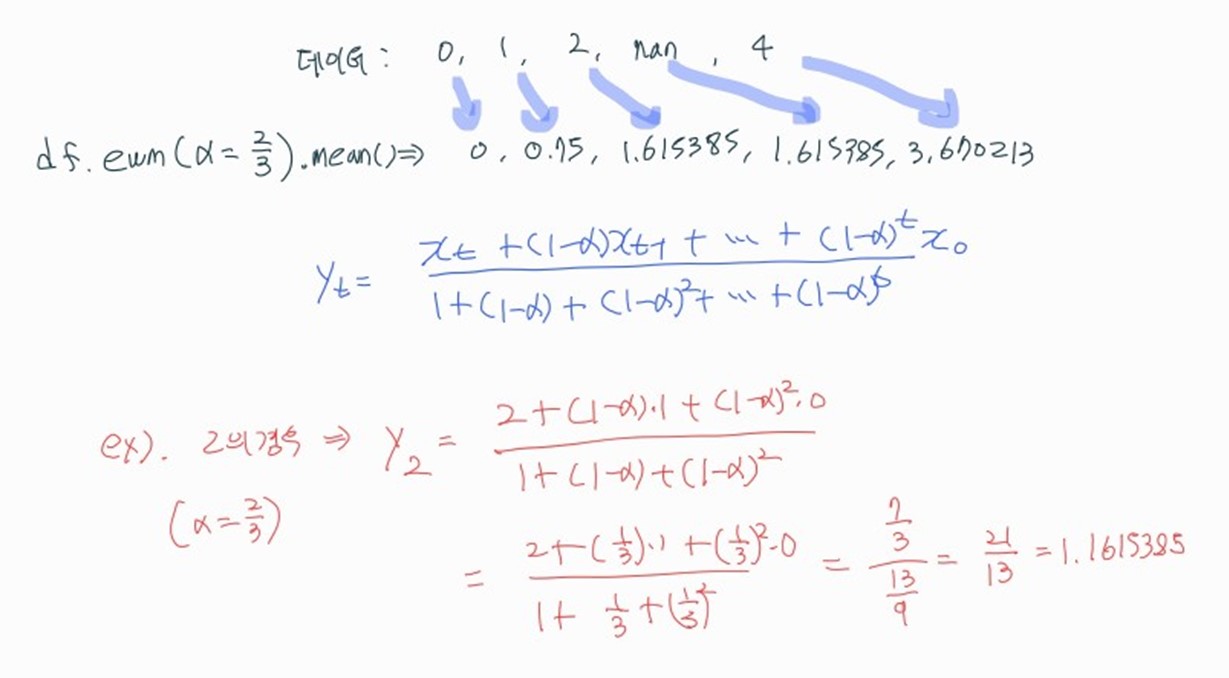 데이터 : 0, 1, 2, nan, 4
df.ewm(α = 2/3).mean() ⇒ 0, 0.75, 1.615385, 1.615385, 3.670213
y_t = (x_t + (1-α)x_{t-1} + ⋯ + (1-α)^t x_0) / (1 + (1-α) + (1-α)^2 + ⋯ + (1-α)^t)
ex). 2의경우 ⇒ y_2 = (2 + (1-α)·1 + (1-α)^2·0) / (1 + (1-α) + (1-α)^2)
(α = 2/3)
= (2 + (1/3)·1 + (1/3)^2·0) / (1 + 1/3 + (1/3)^2) = (7/3) / (13/9) = 21/13 = 1.1615385